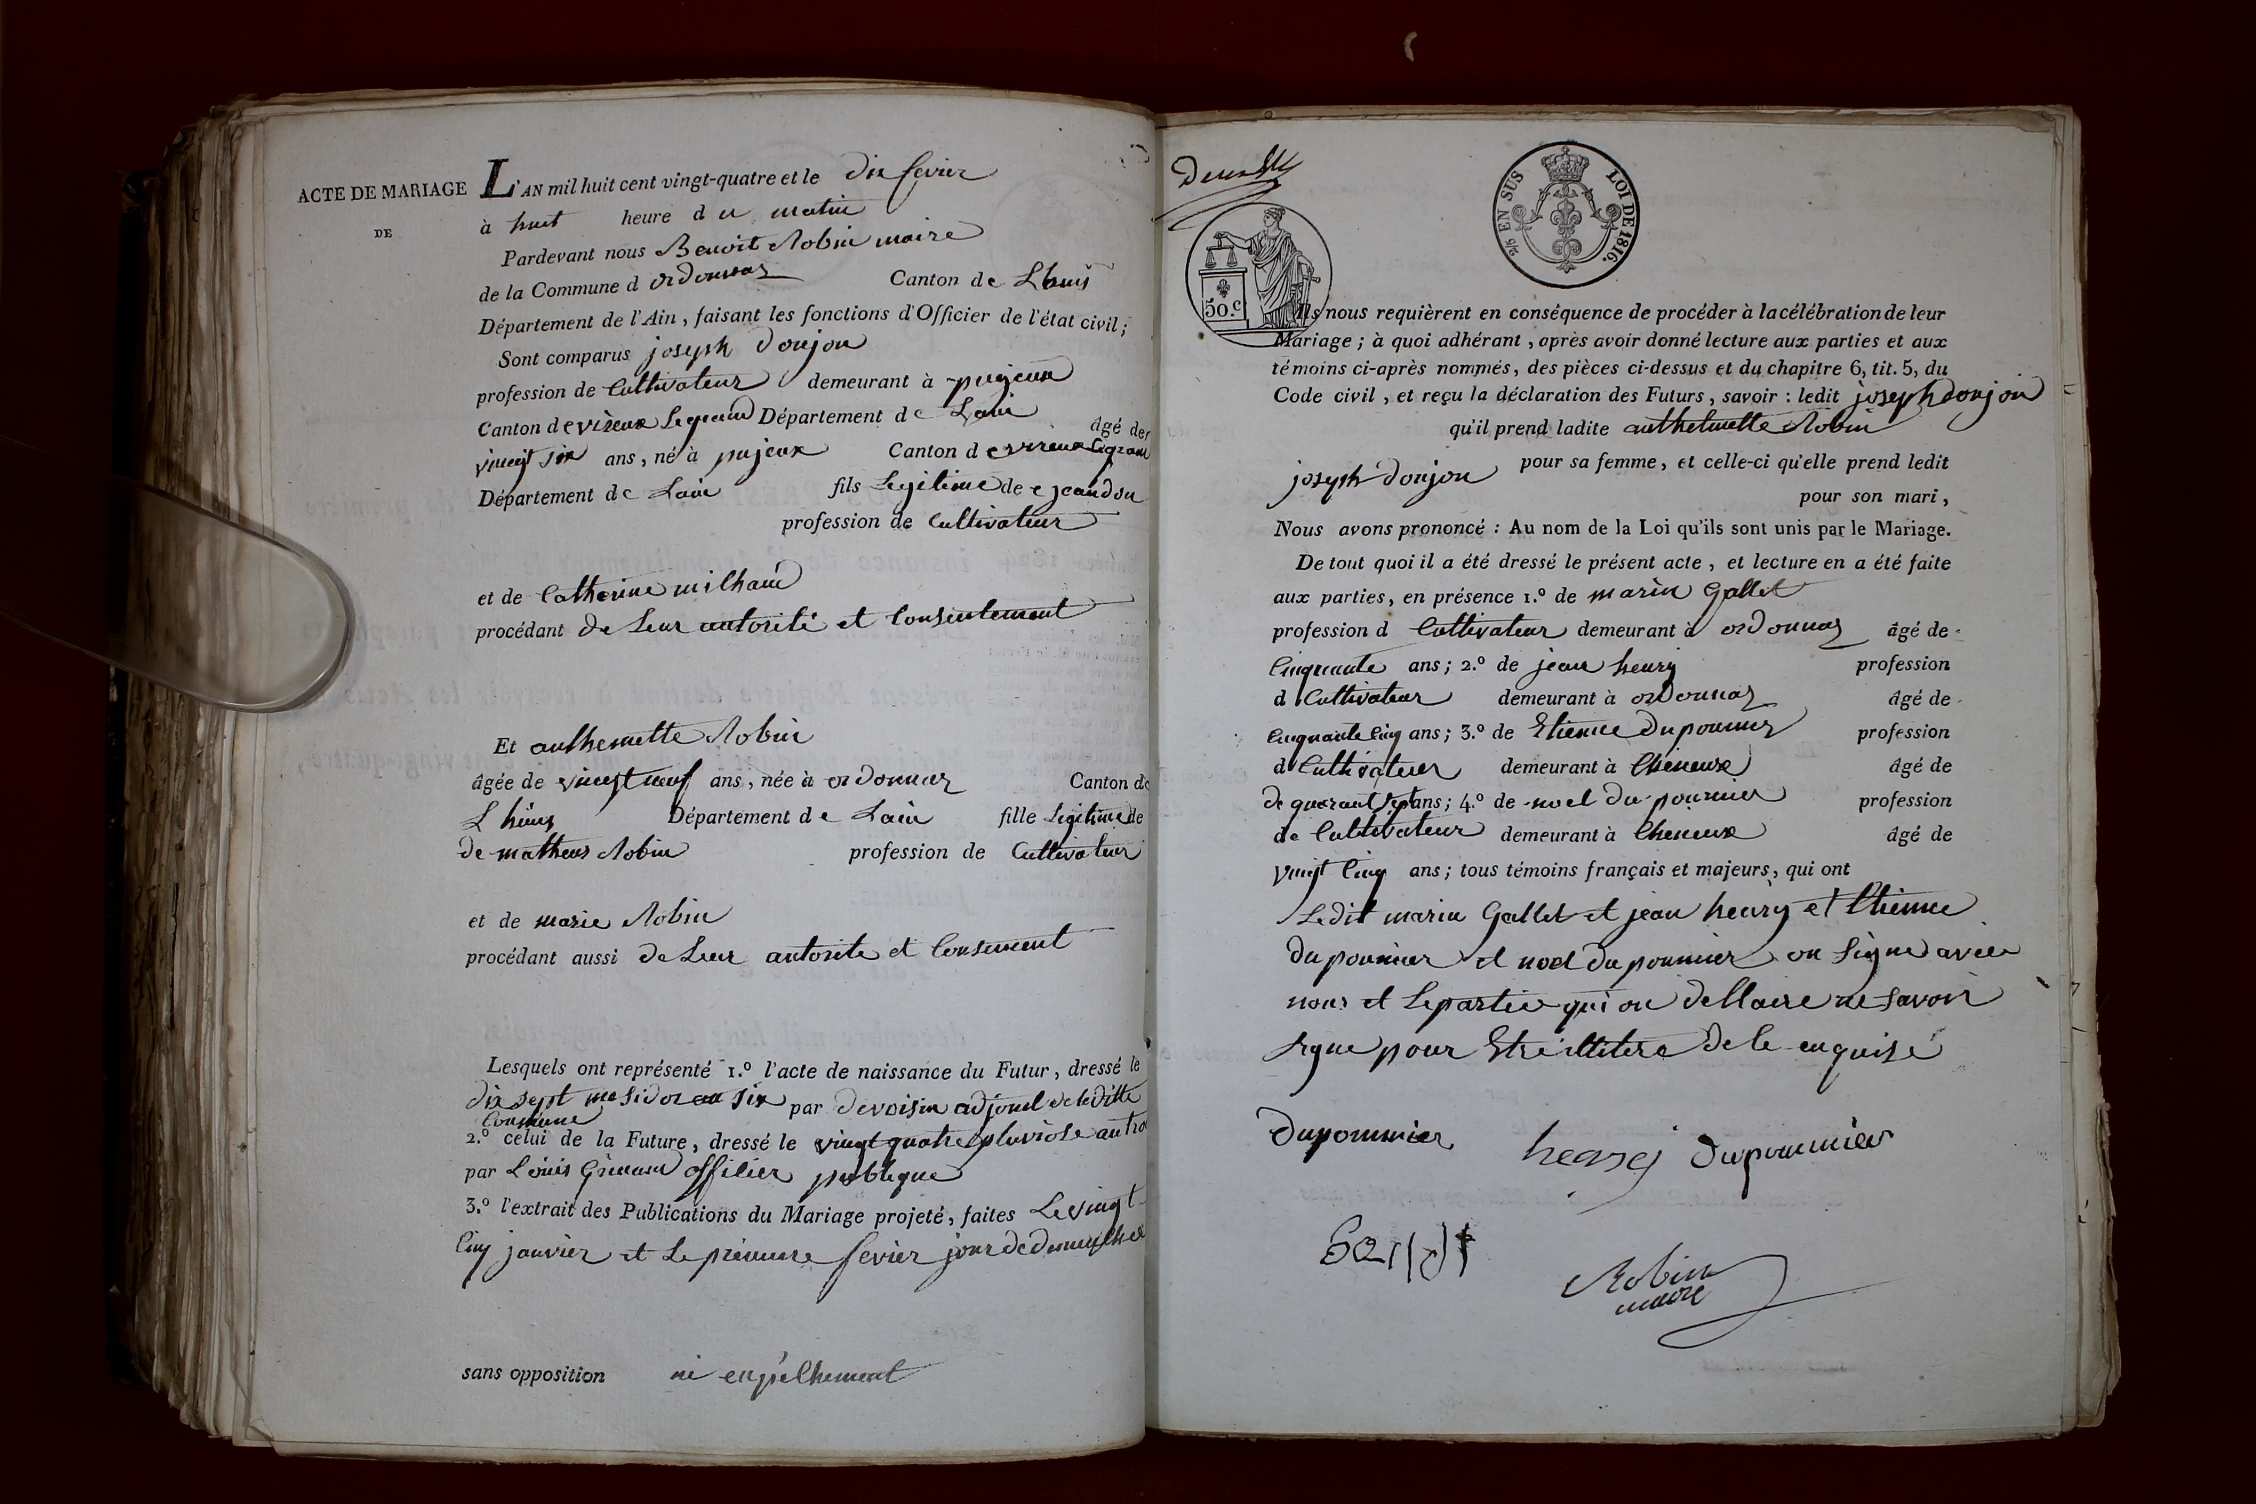 ACTE DE MARIAGE
DE
L'AN mil huit cent vingt-quatre et le dix fevier
à huit heure du matin
Pardevant nous Benoit Robin maire
de la Commune d ordonnaz Canton de Lhuis
Département de l'Ain, faisant les fonctions d'Officier de l'état civil;
Sont comparus joseph donjon
profession de Cultivateur demeurant à pugieux
Canton de virieux Legrand Département de Lain âgé de
vingt six ans, né à pujeux Canton de virieux Legrand
Département de Lain fils Legitime de jean don
profession de Cultivateur
et de Catherine milhaud
procédant de Leur autorité et Consentement
Et anthemette Robin
âgée de vingt neuf ans, née à ordonnaz Canton de
Lhuis Département de Lain fille Legitime de
de matheus Robin profession de Cultivateur
et de marie Robin
procédant aussi de Leur autorite et Consement
Lesquels ont représenté 1.º l'acte de naissance du Futur, dressé le
dix sept mesidor an six par devoisin adjoint de laditte
Commune
2.º celui de la Future, dressé le vingt quatre pluviose an tro
par Louis officier publique
3.º l'extrait des Publications du Mariage projeté, faites Le vingt
Cinq janvier et Le premiere fevier jour de
sans opposition ni enpêchement
2/5 EN SUS LOI DE 1816.
50.c
Ils nous requièrent en conséquence de procéder à la célébration de leur
Mariage; à quoi adhérant, après avoir donné lecture aux parties et aux
témoins ci-après nommés, des pièces ci-dessus et du chapitre 6, tit. 5, du
Code civil, et reçu la déclaration des Futurs, savoir: ledit joseph donjon
qu'il prend ladite anthelmette Robin
pour sa femme, et celle-ci qu'elle prend ledit
joseph donjon pour son mari,
Nous avons prononcé: Au nom de la Loi qu'ils sont unis par le Mariage.
De tout quoi il a été dressé le présent acte, et lecture en a été faite
aux parties, en présence 1.º de marin Gallet
profession d Cultivateur demeurant à ordonnaz âgé de
Cinquante ans; 2.º de jean henry profession
d Cultivateur demeurant à ordonnaz âgé de
Cinquante Cinq ans; 3.º de Etienne Dupommier profession
d Cultivateur demeurant à Cheneux âgé de
de quarant sept ans; 4.º de noel du pommier profession
de Cultivateur demeurant à Cheneux âgé de
vingt Cinq ans; tous témoins français et majeurs, qui ont
Ledit marin Gallet et jean henry et Etienne
dupommier et noel dupommier on signe avec
nous et Le partie qui on dellaire ne savoir
signe pour Etre illitere de le enquise
Dupommier henrj dupommier
Robin
maire